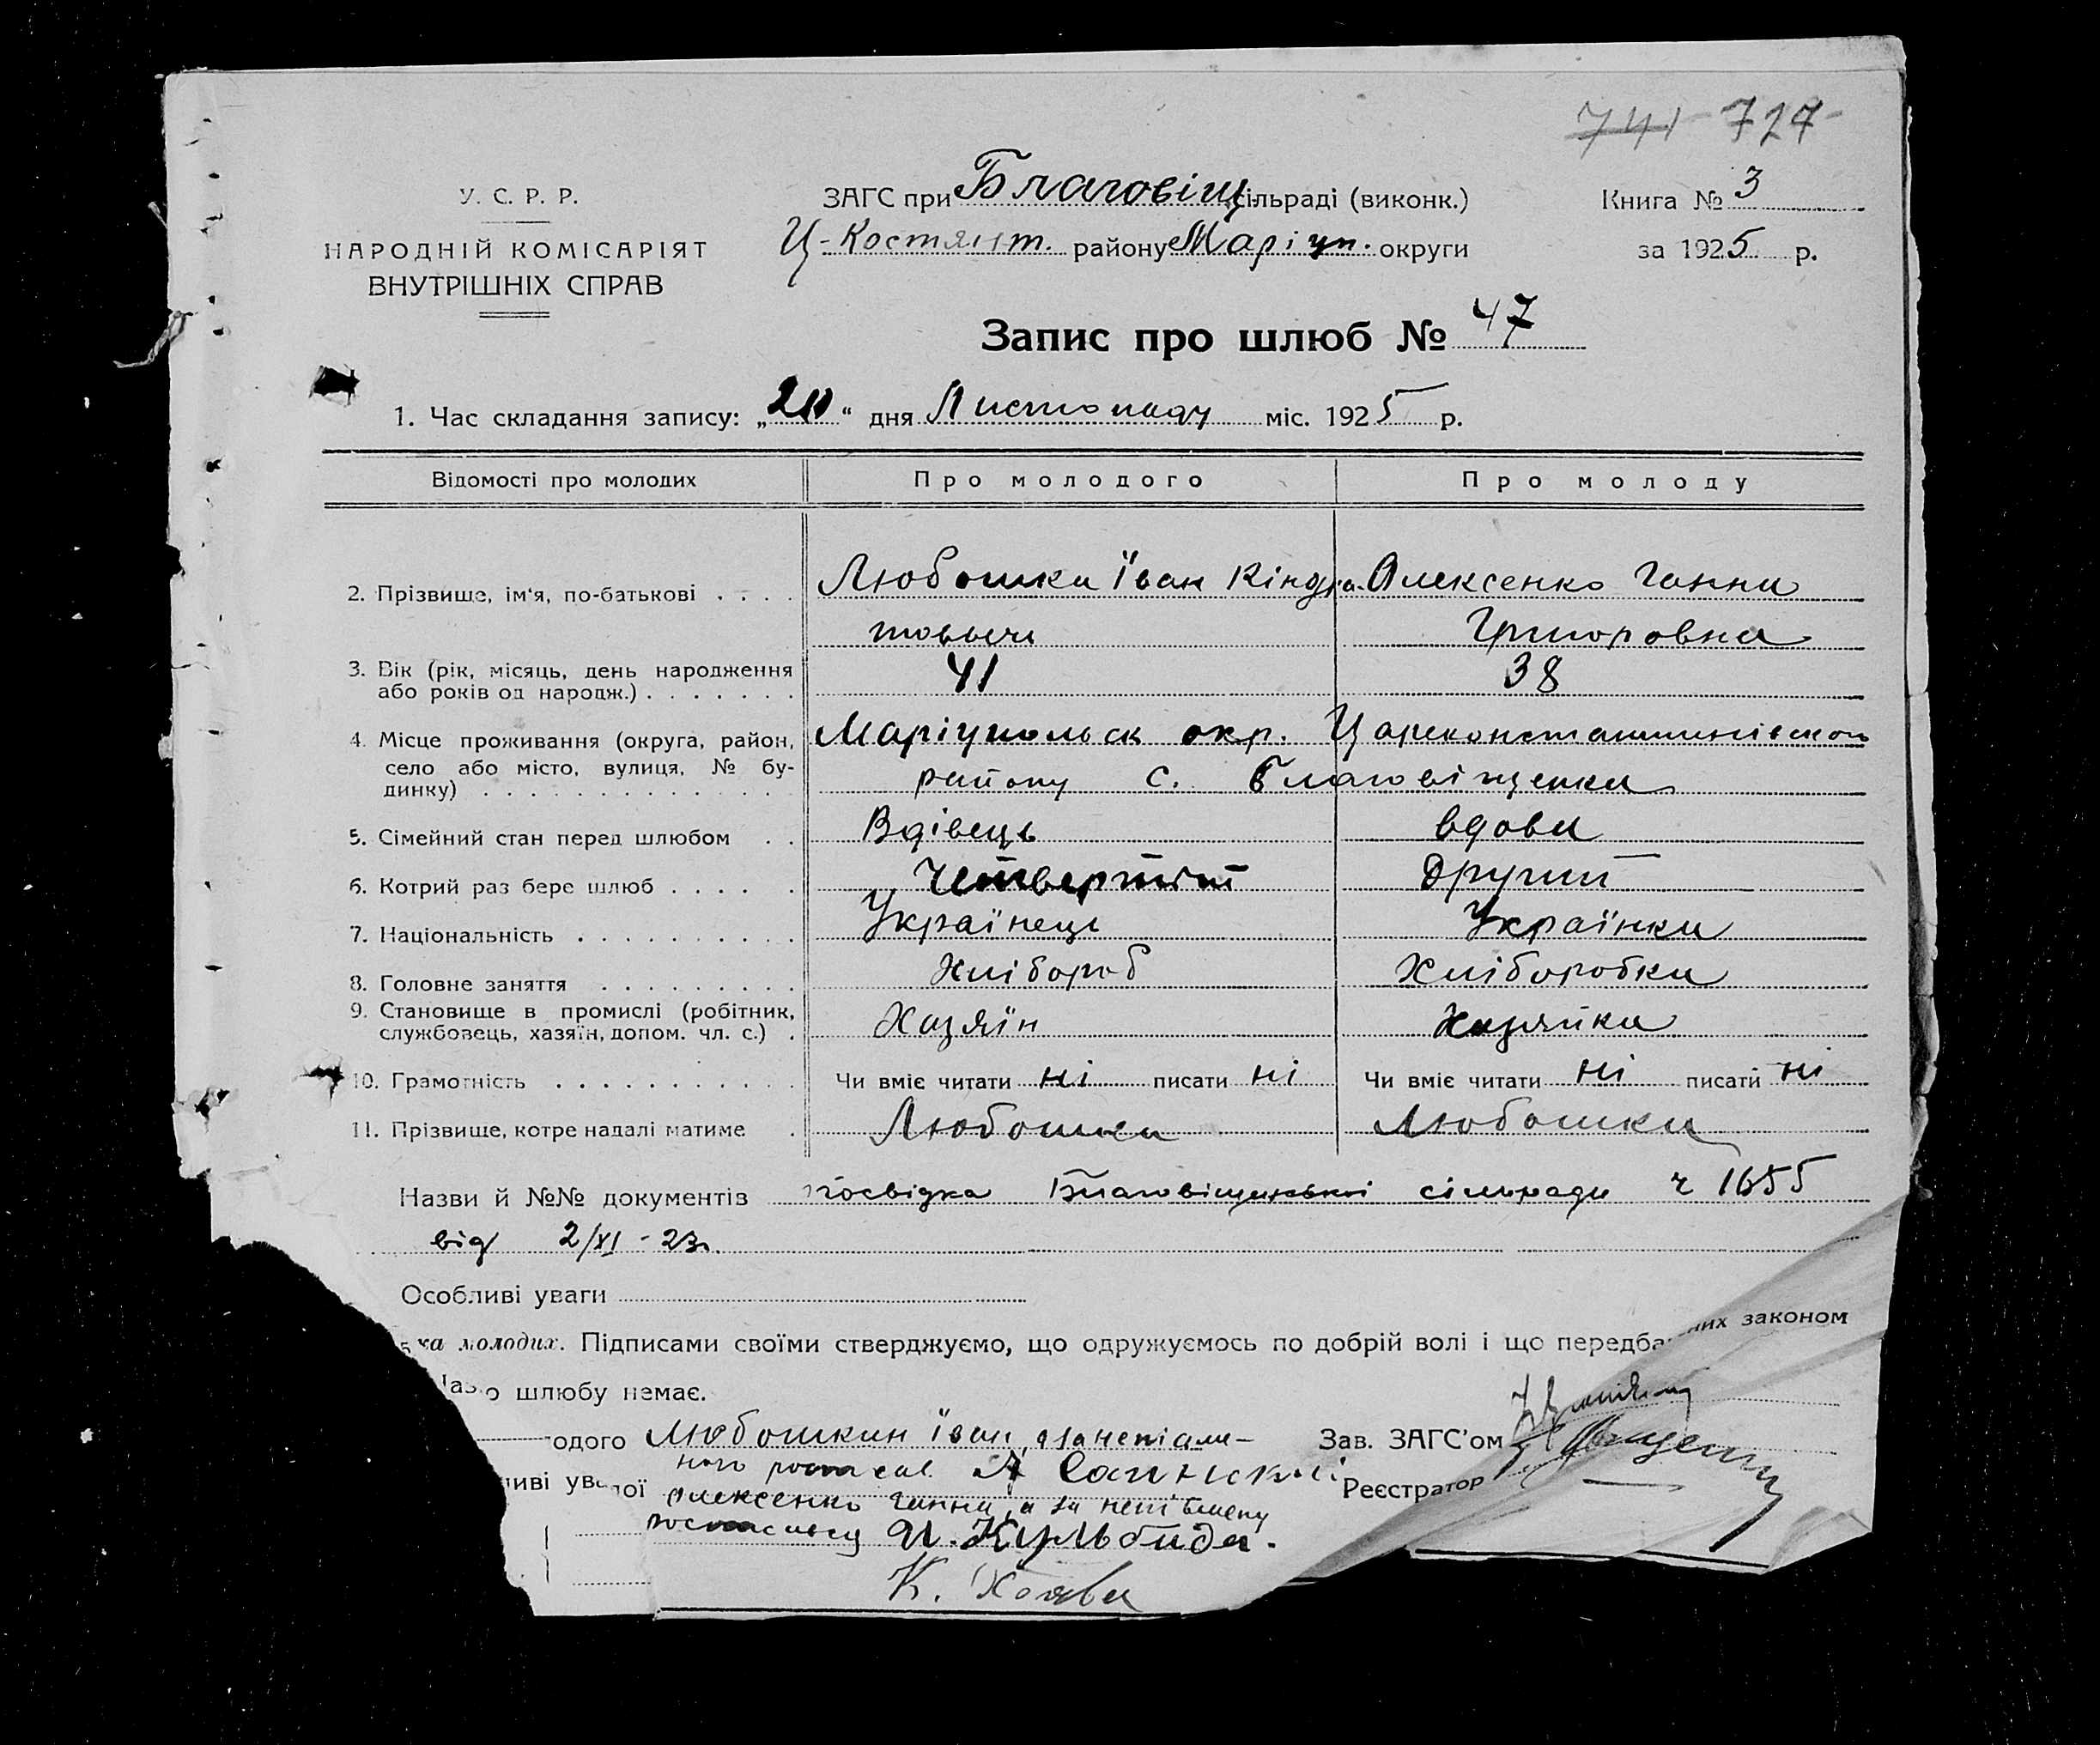 741 727
У. С. Р. Р.
НАРОДНІЙ КОМІСАРІЯТ
ВНУТРІШНІХ СПРАВ
ЗАГС при Благовіщ сільраді (виконк.)
Ц-Костянт. району Маріуп. округи
Книга № 3
за 1925 р.
Запис про шлюб № 47
1. Час складання запису: „ “ дня Листопаду міс. 1925 р.
Відомості про молодих Про молодого Про молоду
2. Прізвище, ім‘я, по-батькові . . . . Любошка Їван Кіндра- Олексенко Ганна
товычь Григоровна
3. Вік (рік, місяць, день народження
або років од народж.) . . . . . . . 41 38
4. Місце проживання (округа, район, Маріупольск окр. Цареконстантинівського
село або місто, вулиця, № бу- району с. Благовіщенка
динку) . . . . . . . . . . . . . .
5. Сімейний стан перед шлюбом . . Вдівець вдова
6. Котрий раз бере шлюб . . . . . Четвертіт Другий
7. Національність . . . . . . . . . . Українець Українка
8. Головне заняття . . . . . . . . . Хлібороб Хліборобка
9. Становище в промислі (робітник,
службовець, хазяїн, допом. чл. с.) . Хазяїн Хазяйка
10. Грамотність . . . . . . . . . . . Чи вміє читати ні писати ні Чи вміє читати ні писати ні
11. Прізвище, котре надалі матиме . Любошка Любошка
Назви й №№ документів посвідка Благовіщенської сільради ч 1655
від 2/XI - 23.
Особливі уваги
ка молодих. Підписами своїми стверджуємо, що одружуємось по добрій волі і що передба них законом
о шлюбу немає.
одого Любошкин Їван, а за непісме-
ного росписався А
Зав. ЗАГС'ом
иві ув ої Олексенко Ганна, а за непісмену
Реєстратор
росписавсь И. Кульбида.
К. Хоява